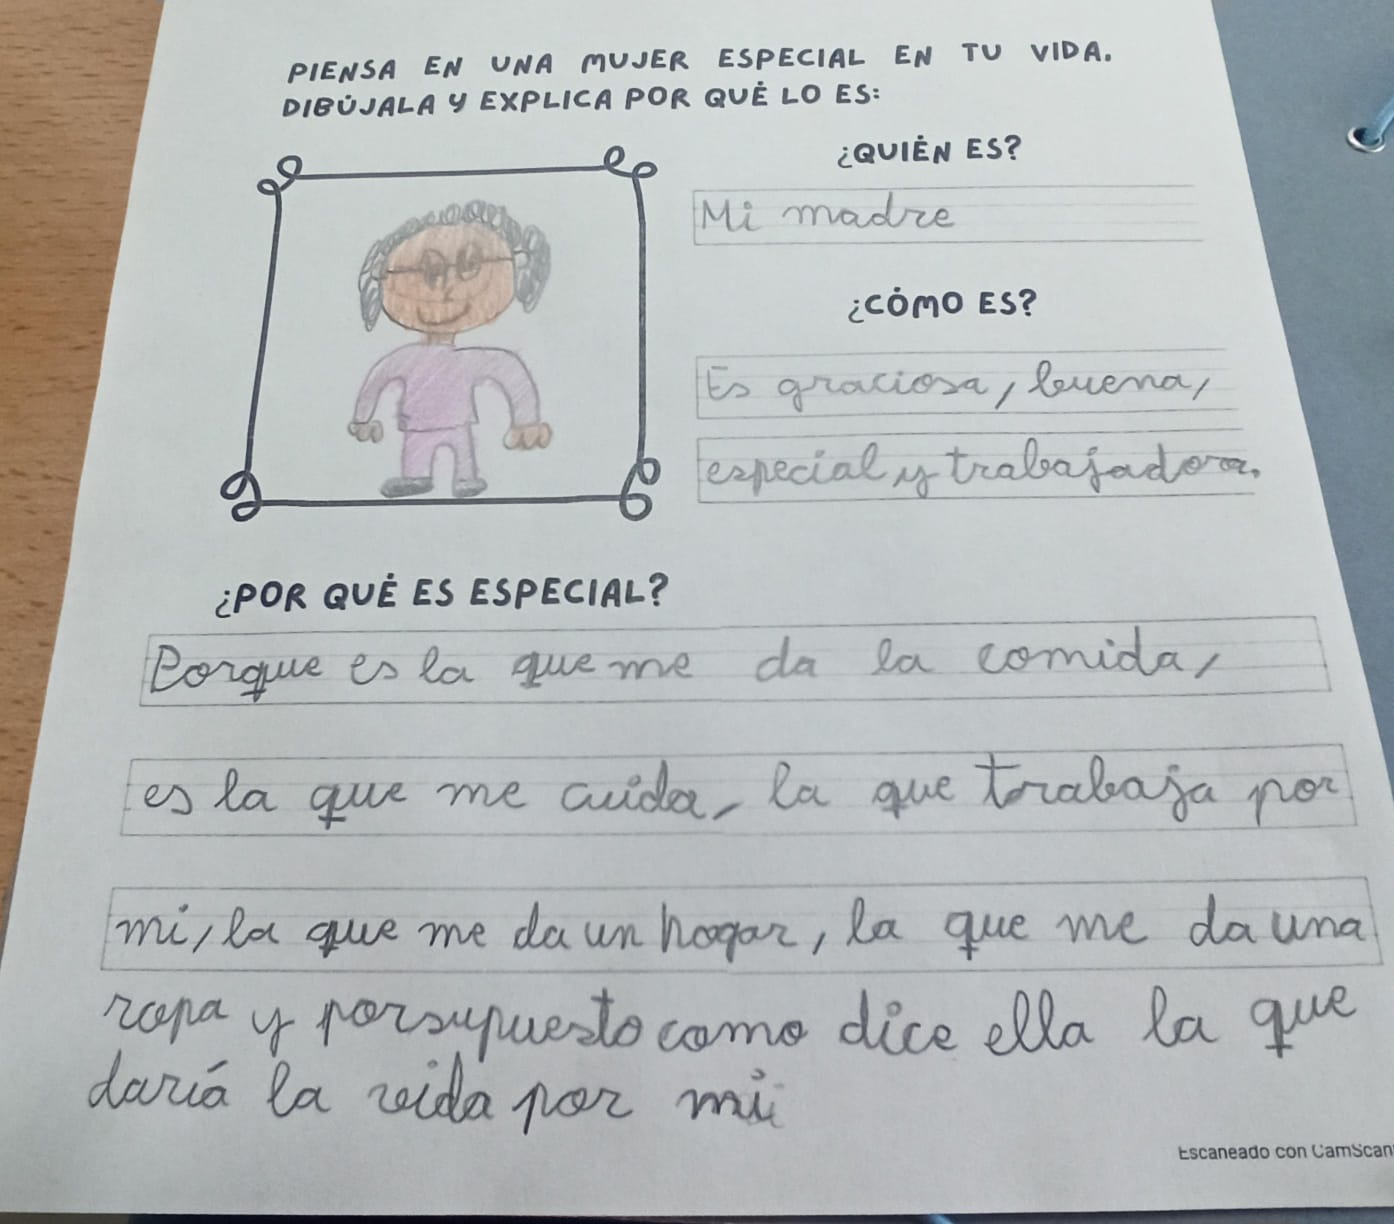 PIENSA EN UNA MUJER ESPECIAL EN TU VIDA.
DIBÚJALA Y EXPLICA POR QUÉ LO ES:
¿QUIÉN ES?
Mi madre
¿CÓMO ES?
Es graciosa, buena,
especial y trabajadora.
¿POR QUÉ ES ESPECIAL?
Porque es la que me da la comida,
es la que me cuida, la que trabaja por
mi, la que me da un hogar, la que me da una
ropa y porsupuesto como dice ella la que
dariá la vida por mi
Escaneado con CamScan